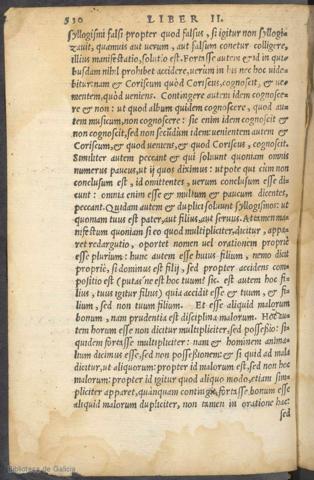 530 LIBER II.
syllogismi falsi propter quod falsus, si igitur non syllogi
zauit, quamuis aut uerum, aut falsum conetur colligere,
illius manifestatio, solutio est. Fortasse autem & id in qui
busdam nihil prohibet accidere, uerum in his nec hoc uide
bitur: nam & Coriscum quòd Coriscus, cognoscit, & ue
nientem, quòd ueniens. Contingere autem idem cognosce
re & non: ut quod album quidem cognoscere, quod au
tem musicum, non cognoscere: sic enim idem cognoscit &
non cognoscit, sed non secundùm idem: uenientem autem &
Coriscum, & quod ueniens, & quod Coriscus, cognoscit.
Similiter autem peccant & qui soluunt quoniam omnis
numerus paucus, ut ij quos diximus: ut pote qui cùm non
conclusum est, id omittentes, uerum conclusum esse di
cunt: omnia enim esse & multum & paucum dicentes,
peccant. Quidam autem & duplici soluunt syllogismos: ut
quoniam tuus est pater, aut filius, aut seruus. Attamen ma
nifestum quoniam si eo quod multipliciter, dicitur, appa
ret redargutio, oportet nomen uel orationem propriè
esse plurium: hunc autem esse huius filium, nemo dicit
propriè, si dominus est filij, sed propter accidens com
positio est (putas'ne est hoc tuum? sic. est autem hoc fi-
lius, tuus igitur filius) quia accidit esse & tuum, & fi-
lium, sed non tuum filium. Et esse aliquid malorum
bonum, nam prudentia est disciplina malorum. Hoc au
tem horum esse non dicitur multipliciter, sed possessio: si
quidem fortasse multipliciter: nam & hominem anima-
lium dicimus esse, sed non possessionem: & si quid ad mala
dicitur, ut aliquorum: propter id malorum est, sed non hoc
malorum: propter id igitur quod aliquo modo, etiam sim-
pliciter apparet, quanquam contingit fortasse bonum esse
aliquid malorum dupliciter, non tamen in oratione hac:
sed
Biblioteca de Galicia